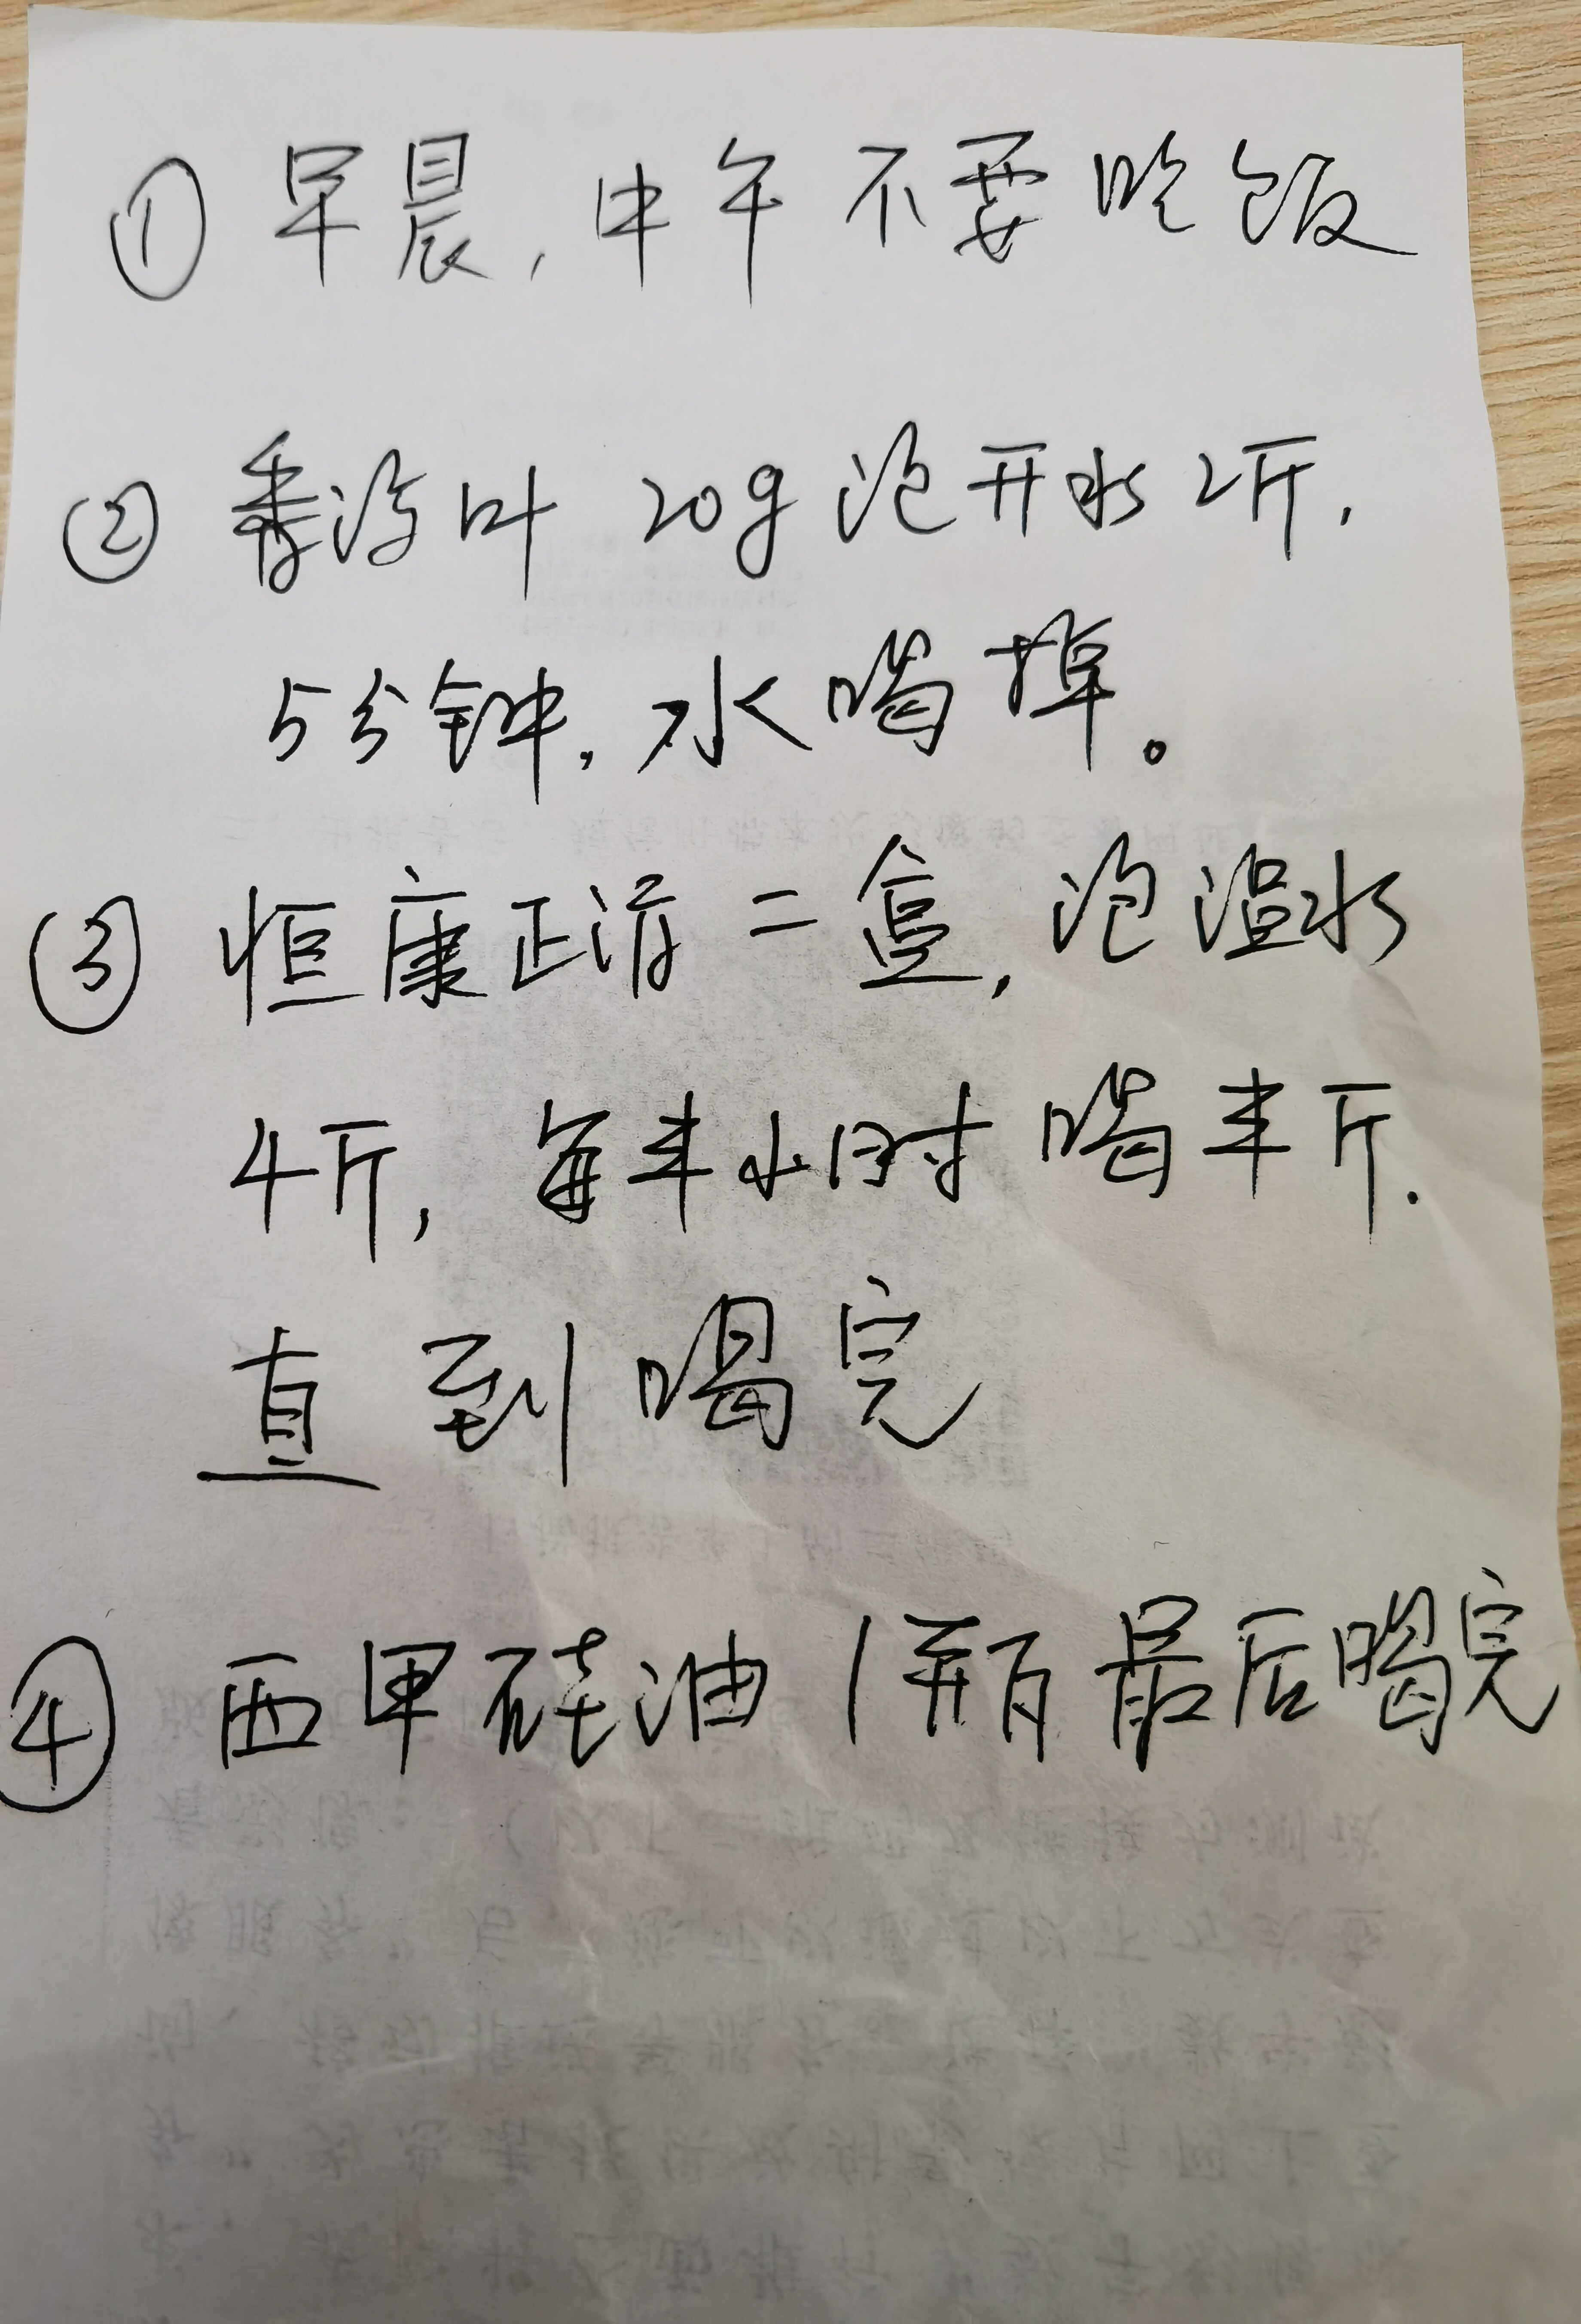 ① 早晨,中午不要吃饭
② 番泻叶 20g 泡开水2斤,
5分钟,水喝掉。
③ 恒康正清二盒,泡温水
4斤,每半小时喝半斤.
直到喝完
④ 西甲硅油1瓶最后喝完